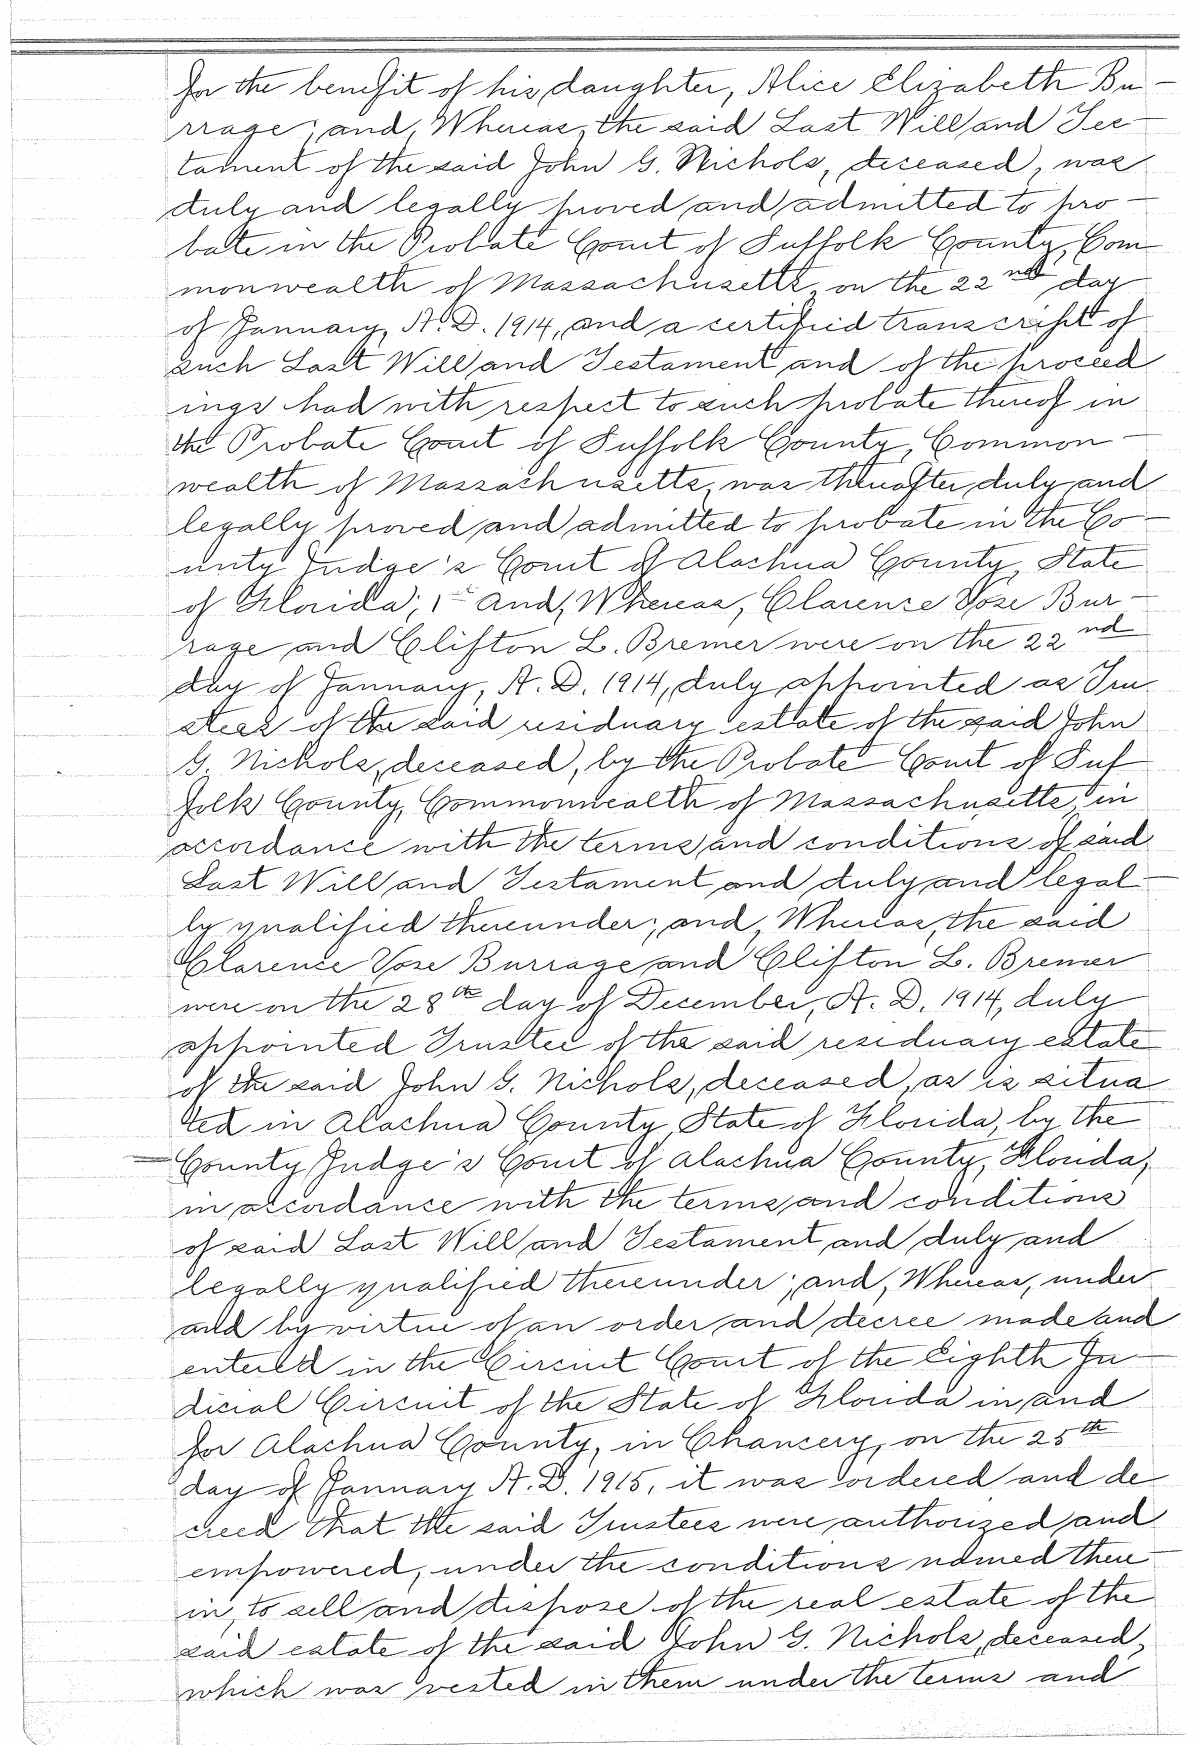 for the benefit of his daughter, Alice Elizabeth Bu-
rrage; and, Whereas, the said Last Will and Tes-
tament of the said John G. Nichols, deceased, was
duly and legally proved and admitted to pro-
bate in the Probate Court of Suffolk County, Com
monwealth of Massachusetts, on the 22nd day
of January, A.D. 1914, and a certified transcript of
such Last Will and Testament and of the proceed
ings had with respect to such probate thereof in
the Probate Court of Suffolk County, Common-
wealth of Massachusetts, was thereafter, duly and
legally proved and admitted to probate in the Co-
unty Judge's Court of Alachua County, State
of Florida; 1st And, Whereas, Clarence Vose Bur-
rage and Clifton L. Bremer were on the 22nd
day of January, A.D. 1914, duly appointed as Tru
stees of the said residuary estate of the said John
G. Nichols, deceased, by the Probate Court of Suf
folk County, Commonwealth of Massachusetts, in
accordance with the terms and conditions of said
Last Will and Testament and duly and legal-
ly qualified thereunder; and, Whereas, the said
Clarence Vose Burrage and Clifton L. Bremer
were on the 28th day of December, A.D. 1914, duly
appointed Trustee of the said residuary estate
of the said John G. Nichols, deceased, as is situa
ted in Alachua County, State of Florida, by the
County Judge's Court of Alachua County, Florida,
in accordance with the terms and conditions
of said Last Will and Testament, and duly and
legally qualified thereunder; and, Whereas, under
and by virtue of an order and decree made and
entered in the Circuit Court of the Eighth Ju-
dicial Circuit of the State of Florida in and
for Alachua County, in Chancery, on the 25th
day of January A.D. 1915, it was ordered and de
creed that the said Trustees were authorized and
empowered, under the conditions named there-
in, to sell and dispose of the real estate of the
said estate of the said John G. Nichols, deceased,
which was vested in them under the terms and